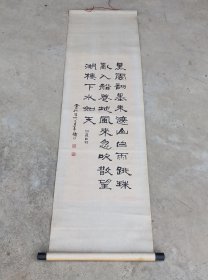 黑雲翻墨未遮山白雨跳珠
亂入船卷地風來忽吹散望
湖樓下水如天